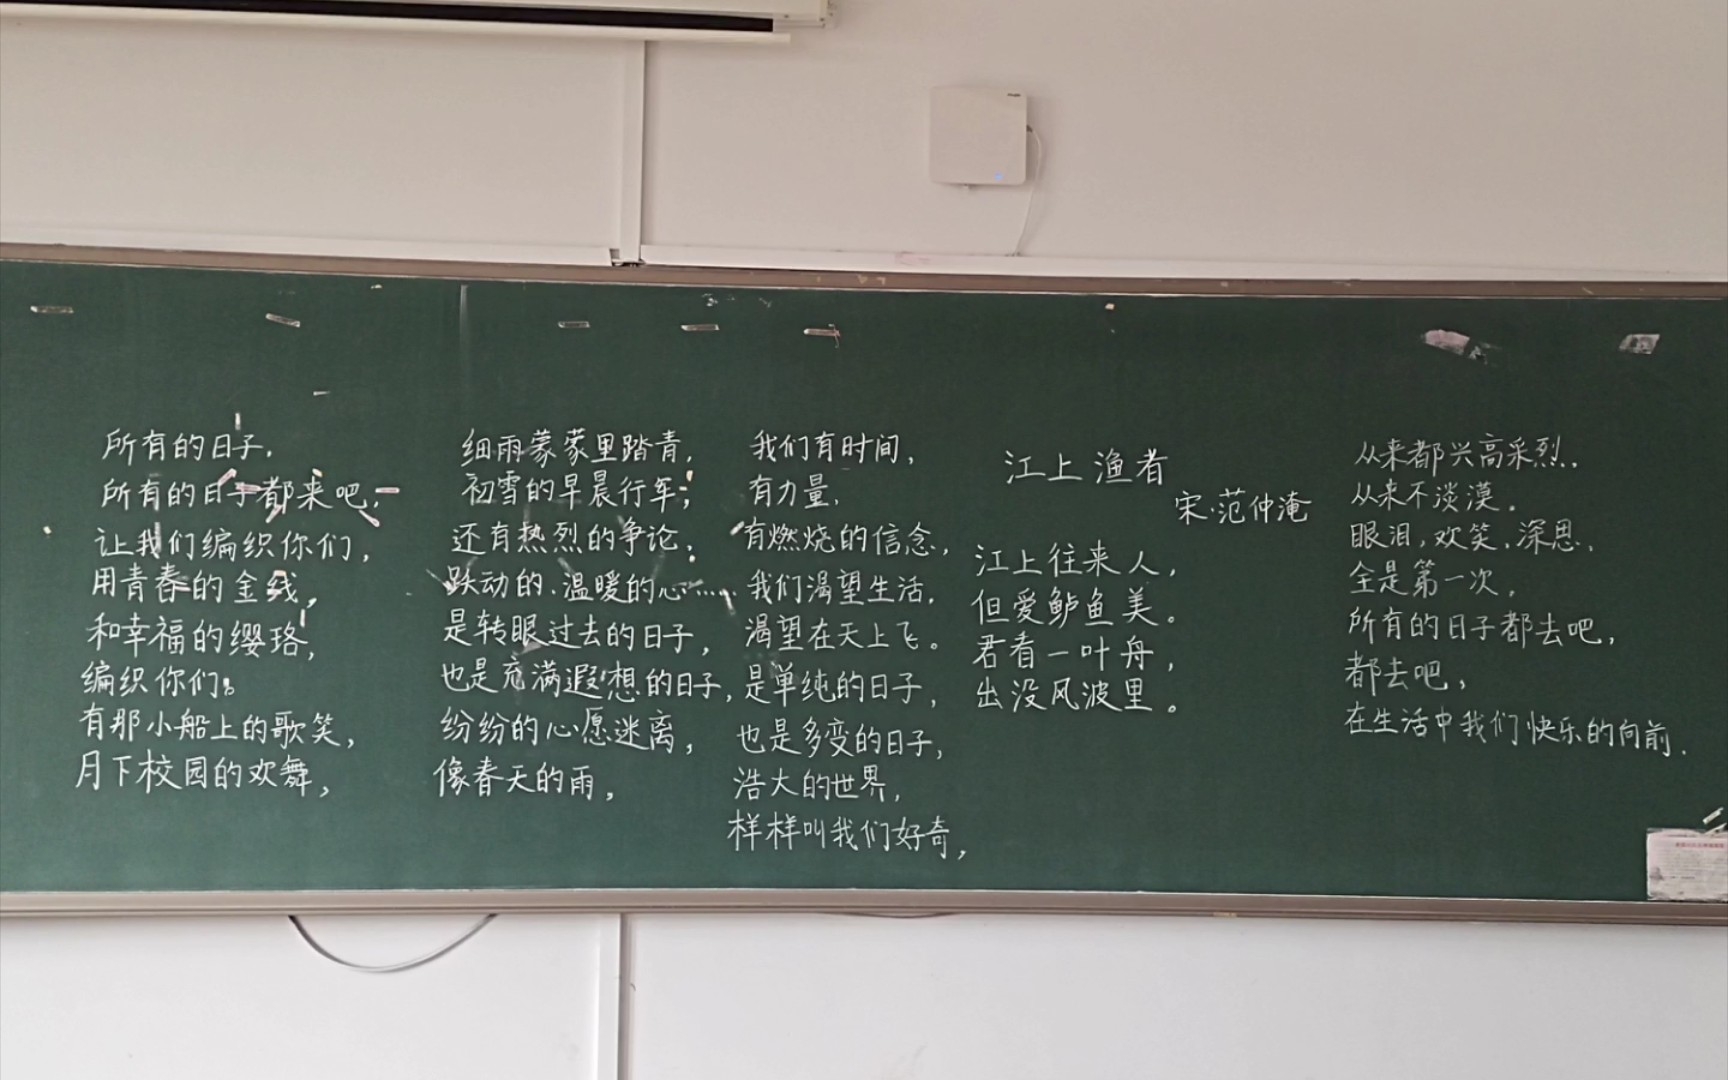 所有的日子,
所有的日子都来吧,
让我们编织你们,
用青春的金线,
和幸福的缨珞,
编织你们。
有那小船上的歌笑,
月下校园的欢舞,
细雨蒙蒙里踏青,
初雪的早晨行军;
还有热烈的争论,
跃动的、温暖的心……
是转眼过去的日子,
也是充满遐想的日子,
纷纷的心愿迷离,
像春天的雨,
我们有时间,
有力量,
有燃烧的信念,
我们渴望生活,
渴望在天上飞。
是单纯的日子,
也是多变的日子,
浩大的世界,
样样叫我们好奇,
江上渔者
宋·范仲淹
江上往来人,
但爱鲈鱼美。
君看一叶舟,
出没风波里。
从来都兴高采烈,
从来不淡漠。
眼泪,欢笑,深思,
全是第一次。
所有的日子都去吧,
都去吧,
在生活中我们快乐的向前.